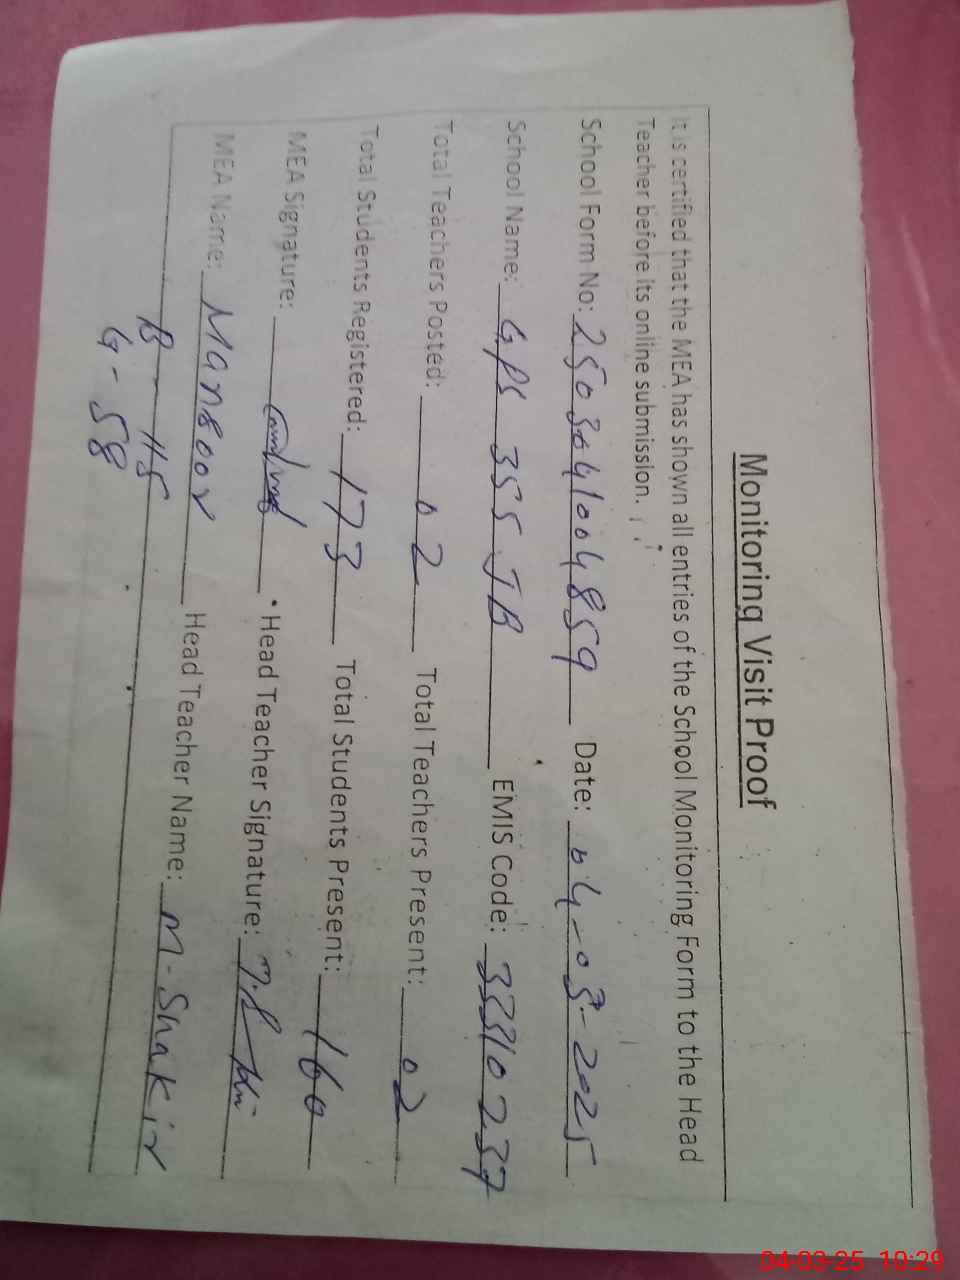 Monitoring Visit Proof
It is certified that the MEA has shown all entries of the School Monitoring Form to the Head
Teacher before its online submission.
School Form No: 2503041004859 Date: 04-03-2025
School Name: GPS 355 JB EMIS Code: 33310237
Total Teachers Posted: 02 Total Teachers Present: 02
Total Students Registered: 173 Total Students Present: 160
MEA Signature: Head Teacher Signature:
MEA Name: Mansoor Head Teacher Name: M-Shakir
B - 115
G - 58
04-03-25 10:29